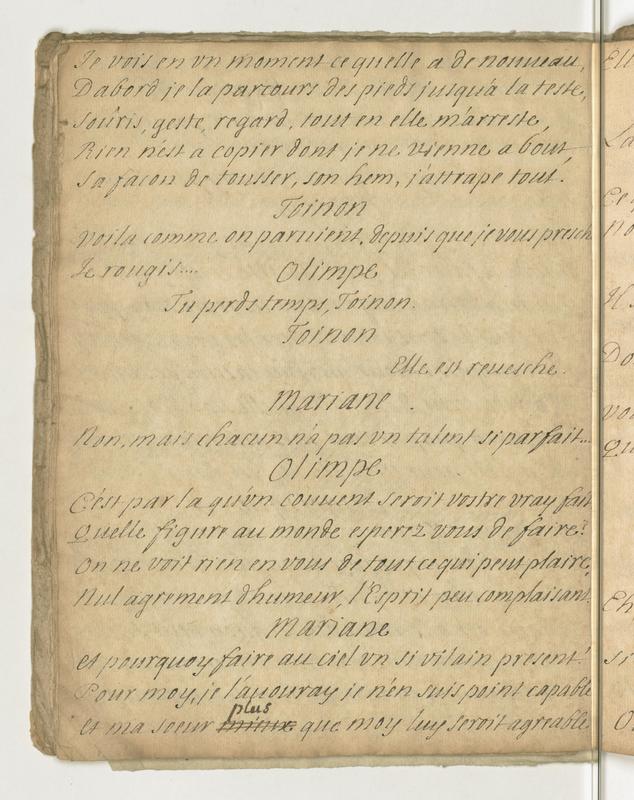 Je vois en vn moment ce quelle a de nouueau,
Dabord je la parcours des pieds jusqu'a la teste,
souris, geste, regard, tout en elle m'arreste,
Rien n'est a copier dont je ne vienne a bout,
sa façon de tousser, son hem, j'attrape tout.
Toinon
voila comme on paruient, depuis que je vous presch
Je rougis....
Olimpe
Tu perds temps, Toinon.
Toinon
Elle est reuesche.
Mariane.
Non, mais chacun n'a pas vn talent si parfait...
Olimpe
C'est par la qu'vn couuent seroit vostre vray fait,
Quelle figure au monde esperez vous de faire?
On ne voit rien en vous de tout ce qui peut plaire,
Nul agrement d'humeur, l'Esprit peu complaisant.
Mariane
et pourquoy faire au ciel vn si vilain present!
Pour moy, je l'auouray je n'en suis point capable
plus
et ma soeur mieux que moy luy seroit agreable